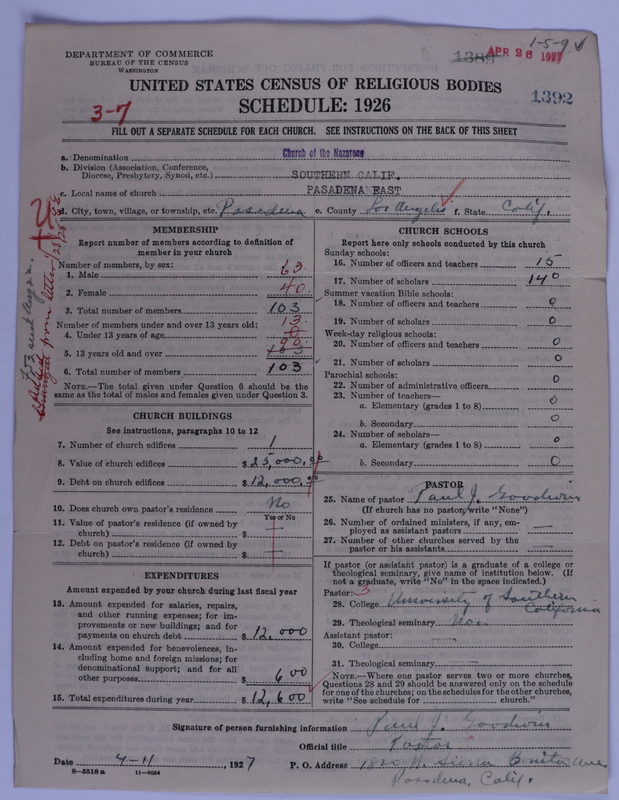 DEPARTMENT OF COMMERCE
BUREAU OF THE CENSUS
WASHINGTON
1389
APR 26 1927
1-5-9 ✓
UNITED STATES CENSUS OF RELIGIOUS BODIES
SCHEDULE: 1926
3-7
1392
FILL OUT A SEPARATE SCHEDULE FOR EACH CHURCH. SEE INSTRUCTIONS ON THE BACK OF THIS SHEET
a. Denomination Church of the Nazarene
b. Division (Association, Conference,
Diocese, Presbytery, Synod, etc.) SOUTHERN CALIF.
c. Local name of church PASADENA EAST
d. City, town, village, or township, etc. Pasadena e. County Los Angeles f. State Calif.
MEMBERSHIP
Report number of members according to definition of
member in your church
Number of members, by sex:
1. Male 63
2. Female 40
3. Total number of members 103
Number of members under and over 13 years old:
4. Under 13 years of age 13
5. 13 years old and over 90
6. Total number of members 103
NOTE.—The total given under Question 6 should be the
same as the total of males and females given under Question 3.
CHURCH BUILDINGS
See instructions, paragraphs 10 to 12
7. Number of church edifices 1
8. Value of church edifices $25,000.00
9. Debt on church edifices $12,000.00
10. Does church own pastor's residence No
Yes or No
11. Value of pastor's residence (if owned by
church) $
12. Debt on pastor's residence (if owned by
church) $
EXPENDITURES
Amount expended by your church during last fiscal year
13. Amount expended for salaries, repairs,
and other running expenses; for im-
provements or new buildings; and for
payments on church debt $12,000
14. Amount expended for benevolences, in-
cluding home and foreign missions; for
denominational support; and for all
other purposes $600
15. Total expenditures during year $12,600
CHURCH SCHOOLS
Report here only schools conducted by this church
Sunday schools:
16. Number of officers and teachers 15
17. Number of scholars 140
Summer vacation Bible schools:
18. Number of officers and teachers 0
19. Number of scholars 0
Week-day religious schools:
20. Number of officers and teachers 0
21. Number of scholars 0
Parochial schools:
22. Number of administrative officers 0
23. Number of teachers—
a. Elementary (grades 1 to 8) 0
b. Secondary 0
24. Number of scholars—
a. Elementary (grades 1 to 8) 0
b. Secondary 0
PASTOR
25. Name of pastor Paul J. Goodwin
(If church has no pastor, write "None")
26. Number of ordained ministers, if any, em-
ployed as assistant pastors —
27. Number of other churches served by the
pastor or his assistants —
If pastor (or assistant pastor) is a graduate of a college or
theological seminary, give name of institution below. (If
not a graduate, write "No" in the space indicated.)
Pastor: 3
28. College University of Southern
California
29. Theological seminary No
Assistant pastor:
30. College
31. Theological seminary
NOTE.—Where one pastor serves two or more churches,
Questions 28 and 29 should be answered only on the schedule
for one of the churches; on the schedules for the other churches,
write "See schedule for church."
Signature of person furnishing information Paul J. Goodwin
Official title Pastor
Date 4-11, 1927 P. O. Address N. Sierra Bonita Ave
Pasadena, Calif.
8-5518a 11-9064